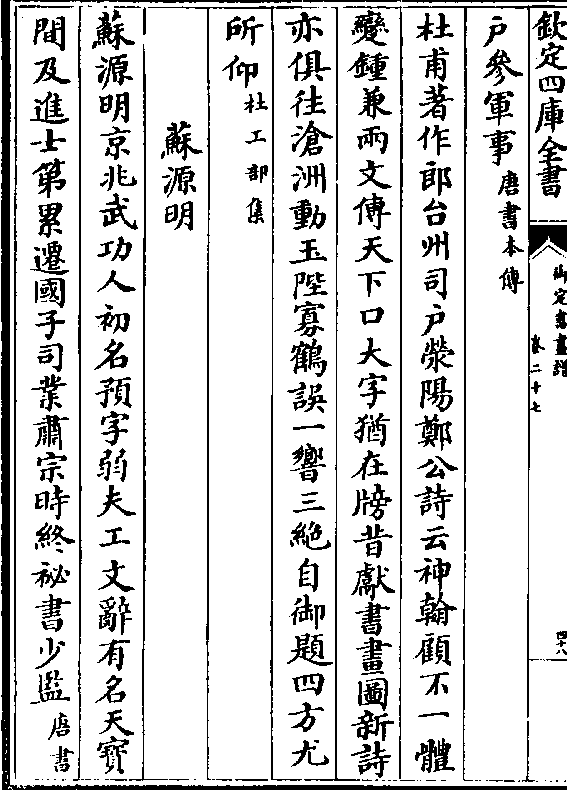 欽定四庫全書
御定書畫譜
卷二十七
四十八
户參軍事唐書本傳
杜甫著作郎台州司户滎陽鄭公詩云神翰顧不一體
變鍾兼兩文傳天下口大字猶在牓昔獻書畫圖新詩
亦俱往滄洲動玉陛寡鶴誤一響三絶自御題四方尤
所仰杜工部集
蘇源明
蘇源明京兆武功人初名預字弱夫工文辭有名天寶
間及進士第累遷國子司業肅宗時終祕書少監唐書